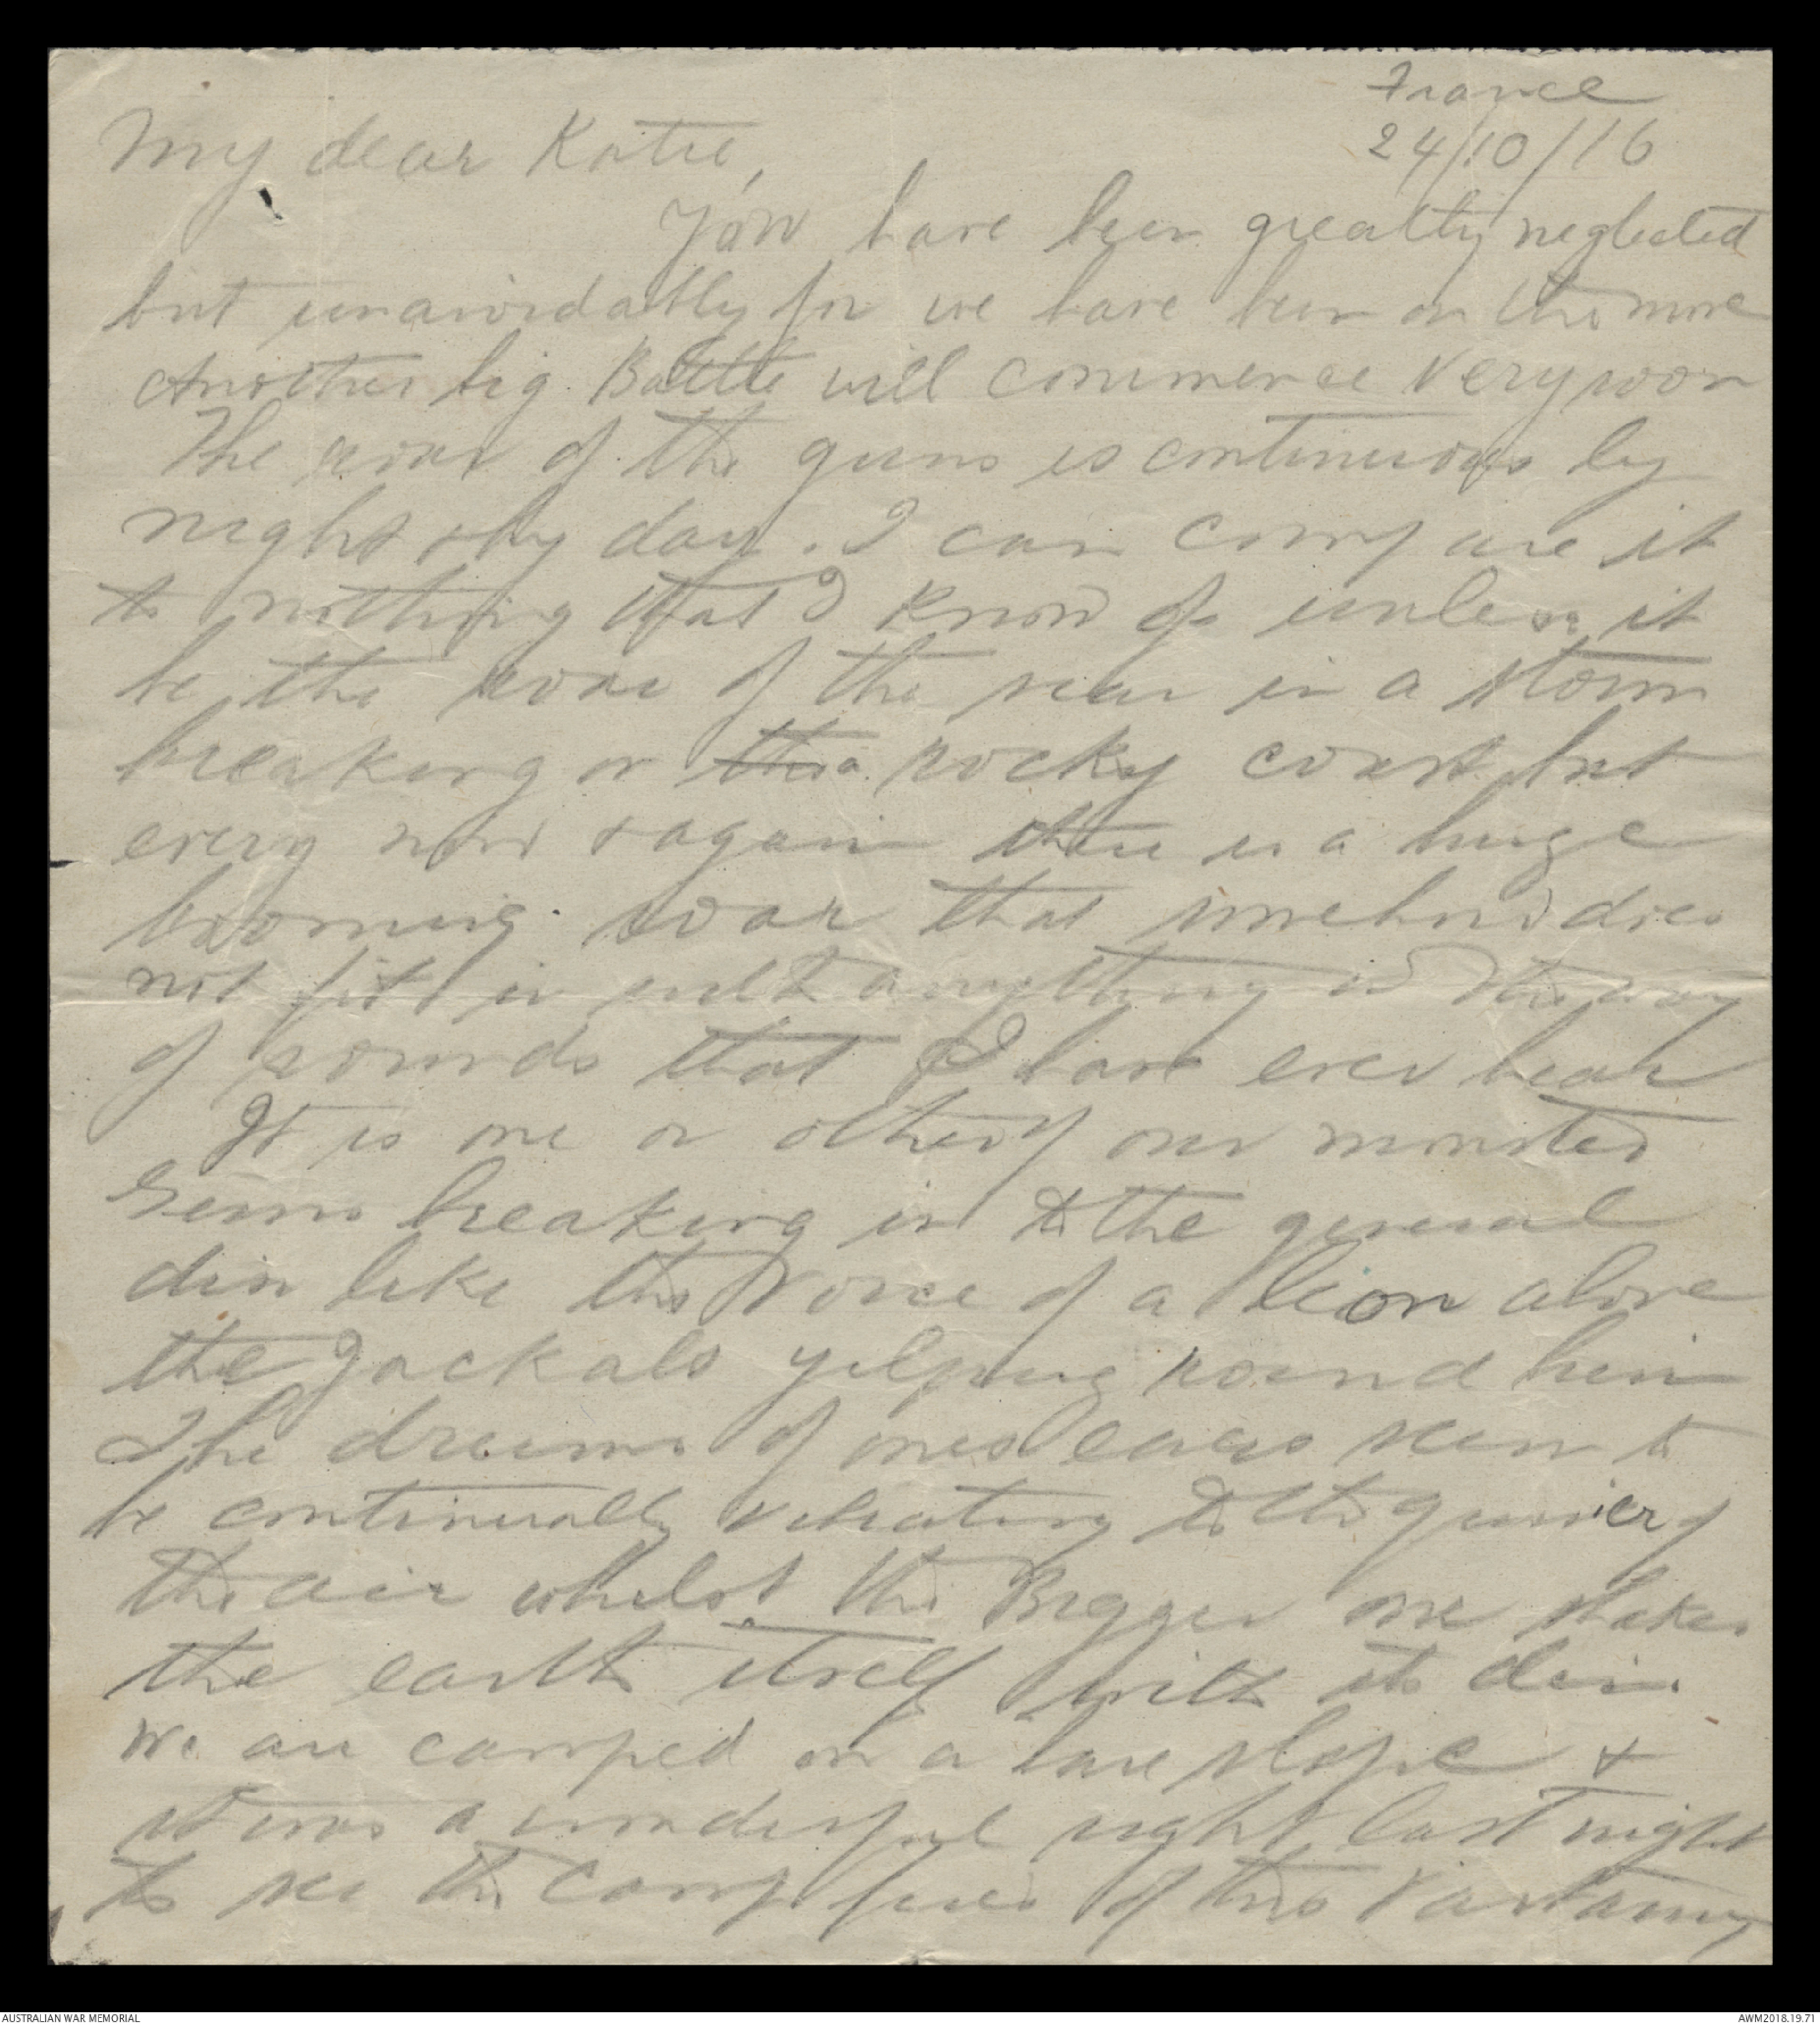 France
24/10/16
My dear Katie,
You have been greatly neglected
but unavoidably for we have been on the move
Another big Battle will commence very soon
The roar of the guns is continuous by
night & by day. I can compare it
to nothing that I know of unless it
be the roar of the sea in a storm
breaking on the a rocky coast but
every now & again there is a huge
booming roar that somehow does
not fit in with anything in the way
of sounds that I have ever hear
It is one or other of our monster
Guns breaking in to the general
din like the voice of a lion above
the Jackals yelping round him
The drums of ones ears seem to
be continually vibrating to the quiver of
the air whilst the Bigger one shakes
the earth itself with its din.
We are camped on a bare slope &
it was a wonderful sight last night
to see the Camp fires of this vast army
AUSTRALIAN WAR MEMORIAL
AWM2018.19.71